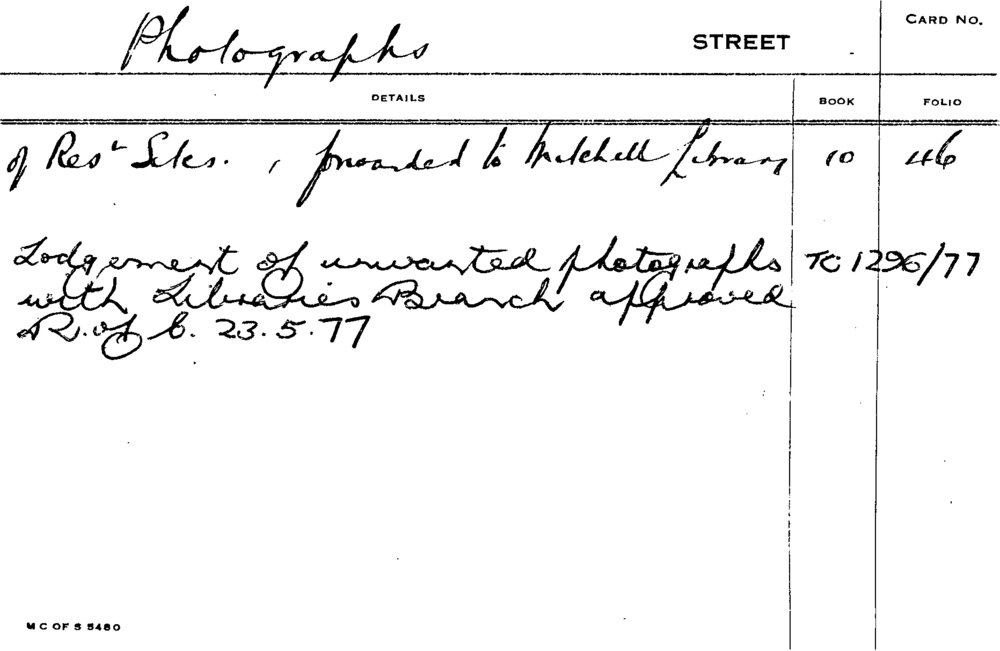 Photographs STREET CARD NO.
DETAILS BOOK FOLIO
of Res. , forwarded to Mitchell Library 10 46
Lodgement of unwanted photographs TC 1296/77
with Libraries Branch approved
R. of C. 23.5.77
M C OF S 5480